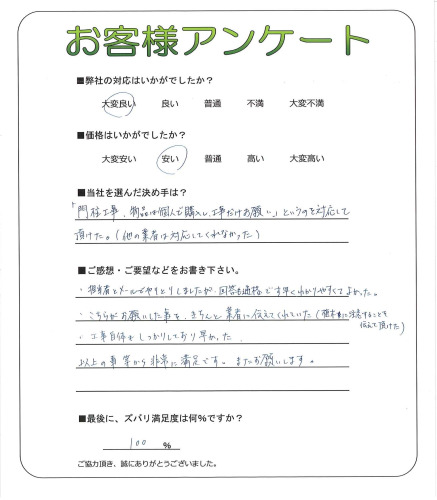 お客様アンケート
■弊社の対応はいかがでしたか？
大変良い 良い 普通 不満 大変不満
■価格はいかがでしたか？
大変安い 安い 普通 高い 大変高い
■当社を選んだ決め手は？
「門柱工事、物品は個人で購入し、工事だけお願い」というのを対応して
頂けた。（他の業者は対応してくれなかった）
■ご感想・ご要望などをお書き下さい。
・担当者とメールでやりとりしましたが、回答も適格で早くわかりやすくてよかった。
・こちらがお願いした事を、きちんと業者に伝えてくれていた（植木に注意することを
伝えて頂けた）
・工事自体もしっかりしており早かった。
以上の事等から非常に満足です。またお願いします。
■最後に、ズバリ満足度は何％ですか？
100 ％
ご協力頂き、誠にありがとうございました。